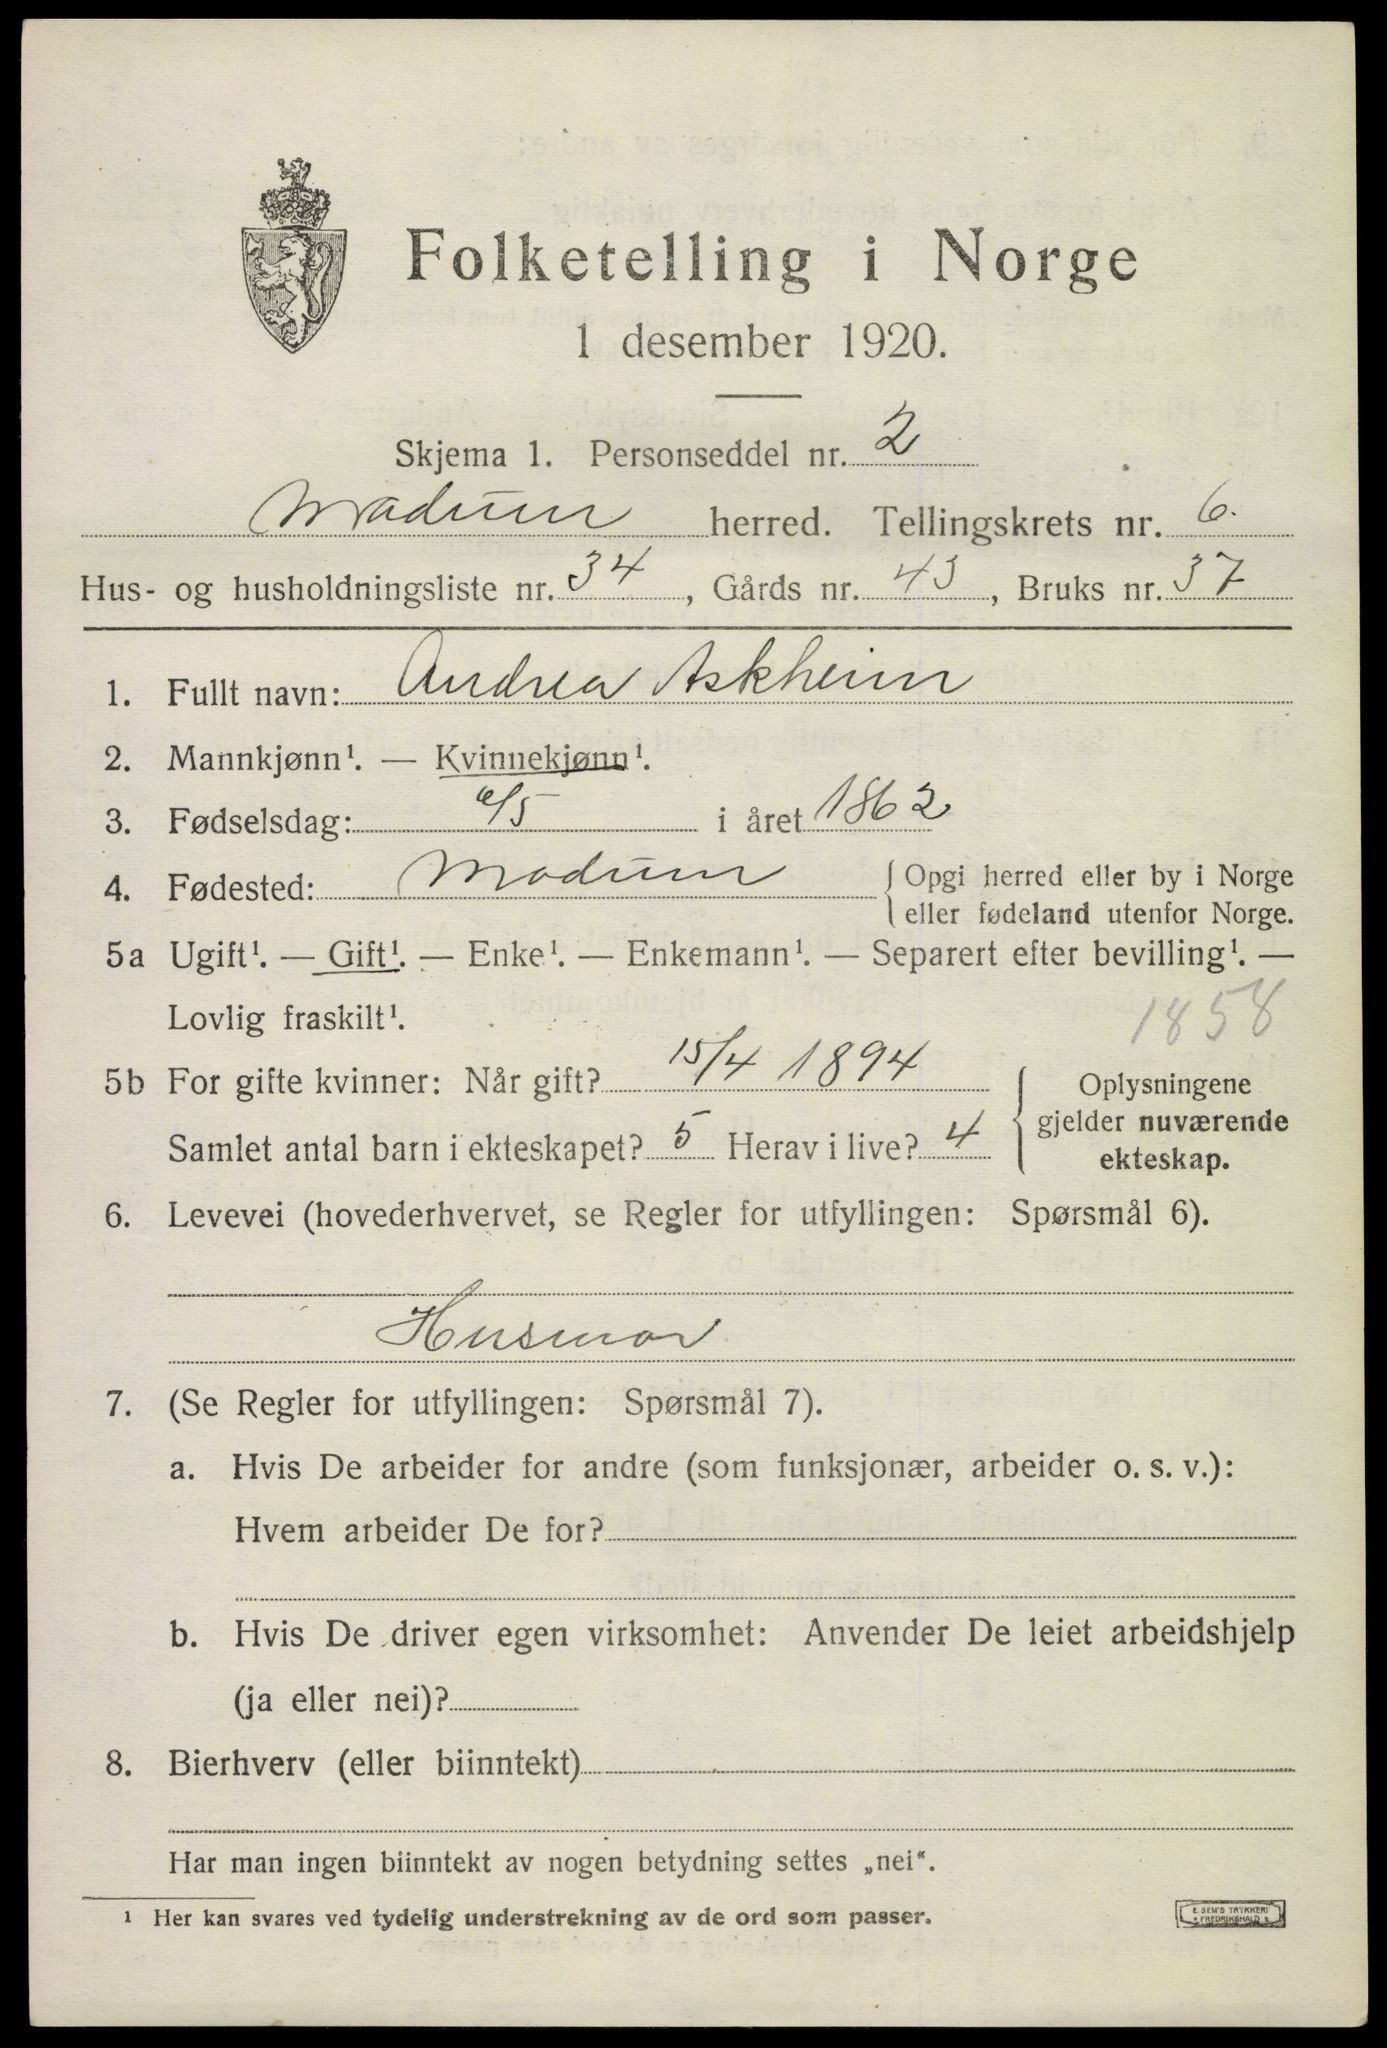 Folketelling i Norge
1 desember 1920.
Skjema 1. Personseddel nr. 2
Modum herred. Tellingskrets nr. 6.
Hus- og husholdningsliste nr. 34, Gårds nr. 43, Bruks nr. 37
1. Fullt navn: Andrea Askheim
2. Mannkjønn¹. — Kvinnekjønn¹.
3. Fødselsdag: 6/5 i året 1862
4. Fødested: Modum { Opgi herred eller by i Norge
eller fødeland utenfor Norge.
5a Ugift¹. — Gift¹. — Enke¹. — Enkemann¹. — Separert efter bevilling¹. —
Lovlig fraskilt¹.
1858
5b For gifte kvinner: Når gift? 15/4 1894
Samlet antal barn i ekteskapet? 5 Herav i live? 4
{ Oplysningene
gjelder nuværende
ekteskap.
6. Levevei (hovederhvervet, se Regler for utfyllingen: Spørsmål 6).
Husmor
7. (Se Regler for utfyllingen: Spørsmål 7).
a. Hvis De arbeider for andre (som funksjonær, arbeider o. s. v.):
Hvem arbeider De for?
b. Hvis De driver egen virksomhet: Anvender De leiet arbeidshjelp
(ja eller nei)?
8. Bierhverv (eller biinntekt)
Har man ingen biinntekt av nogen betydning settes „nei“.
¹ Her kan svares ved tydelig understrekning av de ord som passer.
E. SEM'S TRYKKERI
FREDRIKSHALD